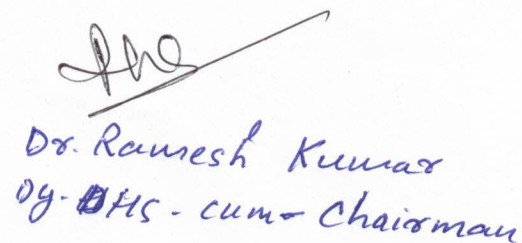 Dr. Ramesh Kumar
Dy. DHS - cum - Chairman